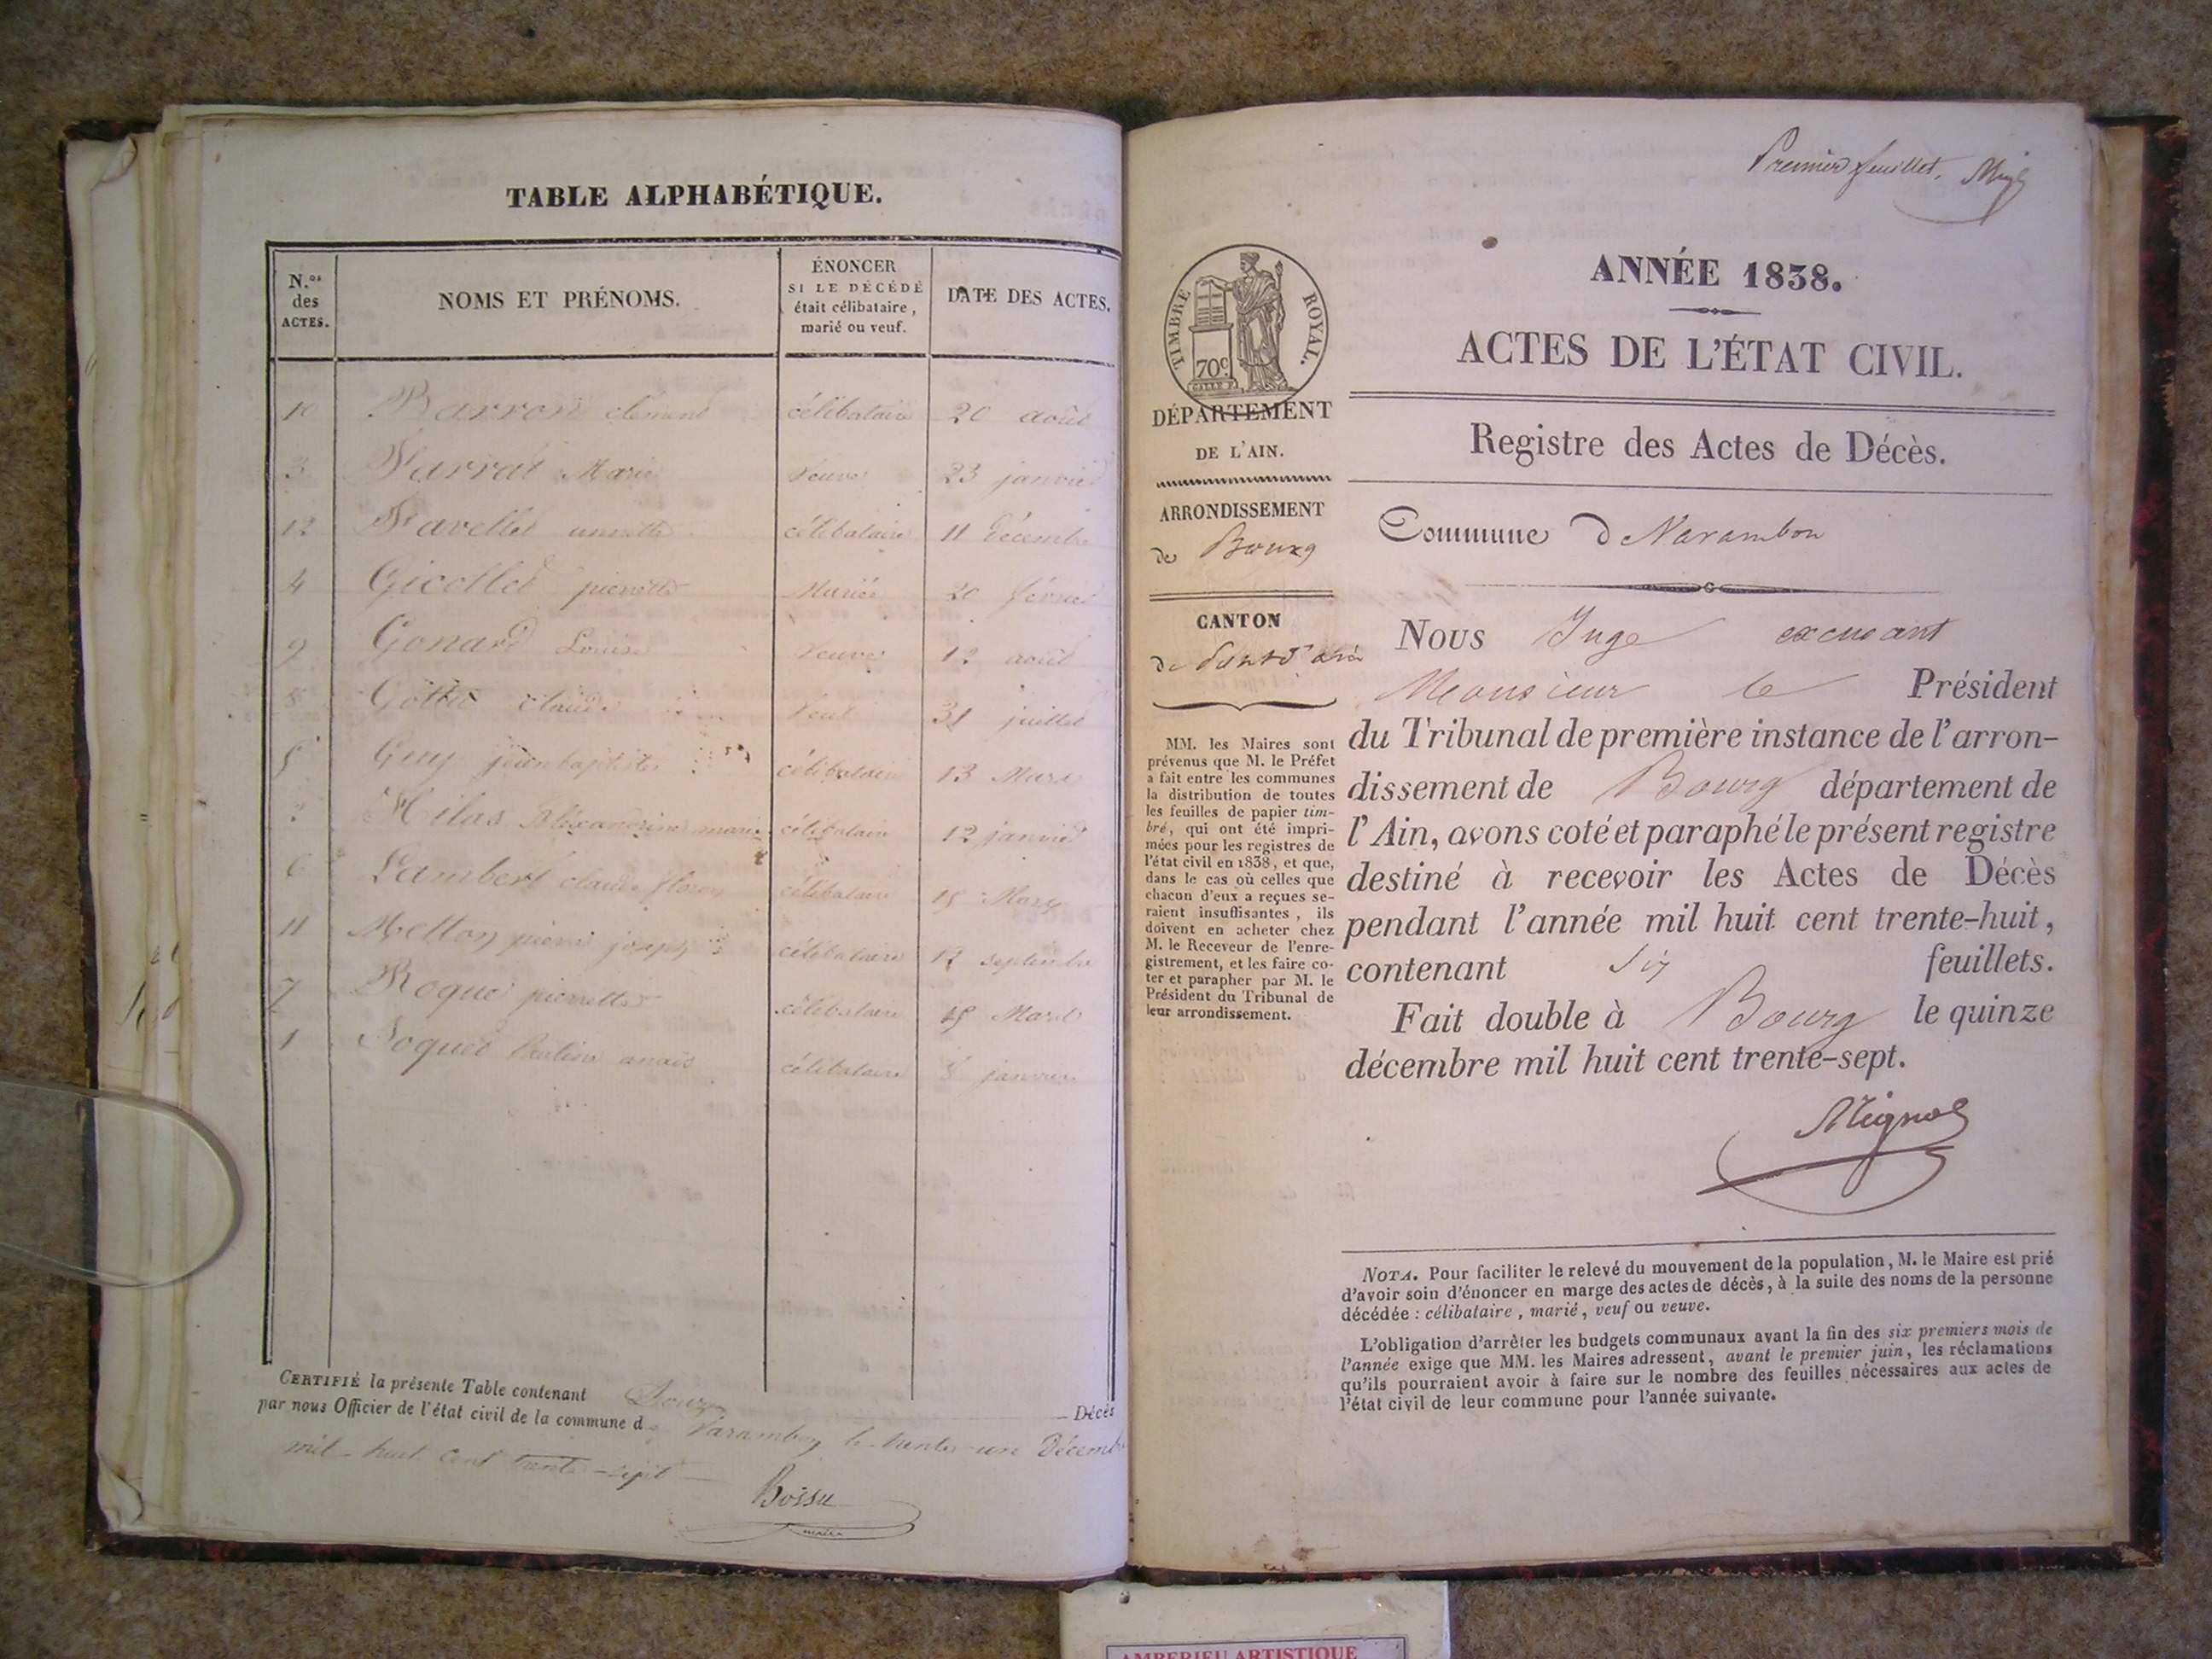 TABLE ALPHABÉTIQUE.
N.os des ACTES.
NOMS ET PRÉNOMS.
ÉNONCER
SI LE DÉCÉDÉ
était célibataire,
marié ou veuf.
DATE DES ACTES.
10 Barron clément célibataire 20 août
3 Marie veuve 23 janvier
12 célibataire 11 Décembre
4 pierrette Mariée 20 février
9 Gonard Louise veuve 12 août
8 claude veuf 31 juillet
5 Guy jean baptiste célibataire 13 Mars
Milas Alexandrine marie célibataire 12 janvier
6 Lambert claude célibataire 15 Mars
11 pierre joseph célibataire 12 septembre
7 pierrette célibataire 15 Mars
1 anais célibataire 8 janvier
CERTIFIÉ la présente Table contenant Douze Décès
par nous Officier de l'état civil de la commune de Varambon le trente-un Décembre
mil-huit cent trente-sept
Bossu
maire
Premier feuillet.
TIMBRE ROYAL.
70c.
DÉPARTEMENT
DE L'AIN.
ARRONDISSEMENT
de Bourg
CANTON
de Pont d'ain
MM. les Maires sont
prévenus que M. le Préfet
a fait entre les communes
la distribution de toutes
les feuilles de papier tim-
bré, qui ont été impri-
mées pour les registres de
l'état civil en 1838, et que,
dans le cas où celles que
chacun d'eux a reçues se-
raient insuffisantes, ils
doivent en acheter chez
M. le Receveur de l'enre-
gistrement, et les faire co-
ter et parapher par M. le
Président du Tribunal de
leur arrondissement.
ANNÉE 1838.
ACTES DE L'ÉTAT CIVIL.
Registre des Actes de Décès.
Commune d Varambon
Nous Juge
Monsieur le Président
du Tribunal de première instance de l'arron-
dissement de Bourg département de
l'Ain, avons coté et paraphé le présent registre
destiné à recevoir les Actes de Décès
pendant l'année mil huit cent trente-huit,
contenant six feuillets.
Fait double à Bourg le quinze
décembre mil huit cent trente-sept.
NOTA. Pour faciliter le relevé du mouvement de la population, M. le Maire est prié
d'avoir soin d'énoncer en marge des actes de décès, à la suite des noms de la personne
décédée : célibataire, marié, veuf ou veuve.
L'obligation d'arrêter les budgets communaux avant la fin des six premiers mois de
l'année exige que MM. les Maires adressent, avant le premier juin, les réclamations
qu'ils pourraient avoir à faire sur le nombre des feuilles nécessaires aux actes de
l'état civil de leur commune pour l'année suivante.
AMBERIEU ARTISTIQUE